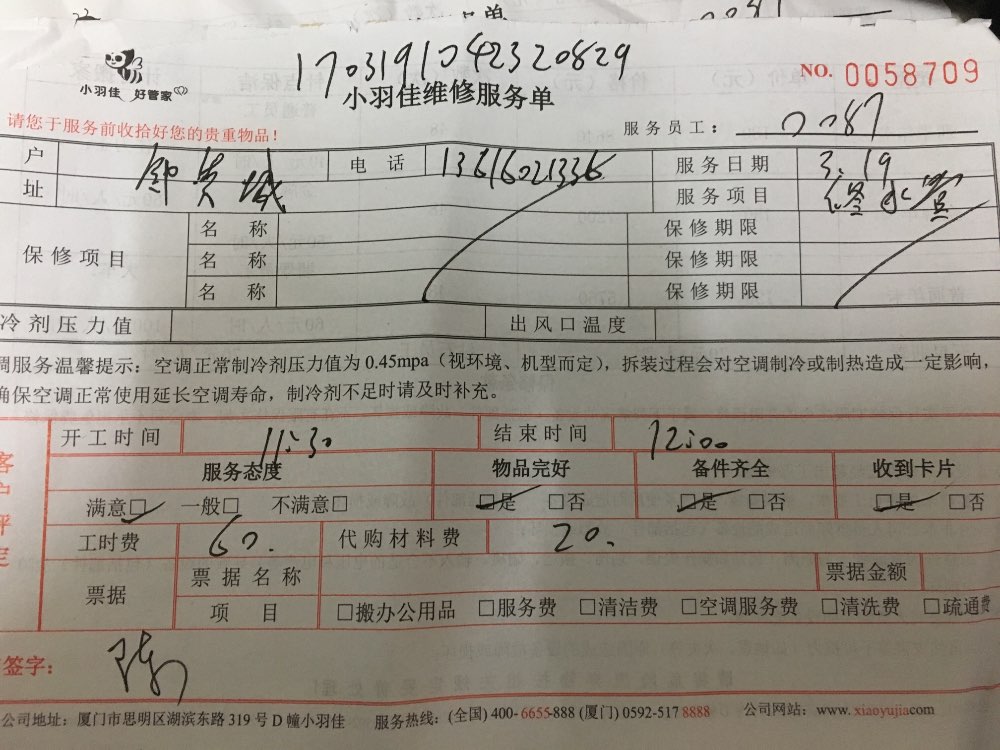 1703191042320829
小羽佳 好管家
小羽佳维修服务单
NO. 0058709
请您于服务前收拾好您的贵重物品！
服务员工： 0087
户 电 话 13616021336 服务日期 3.19
址 服务项目 修水管
保修项目 名 称 保修期限
名 称 保修期限
名 称 保修期限
冷剂压力值 出风口温度
调服务温馨提示：空调正常制冷剂压力值为 0.45mpa（视环境、机型而定），拆装过程会对空调制冷或制热造成一定影响，
确保空调正常使用延长空调寿命，制冷剂不足时请及时补充。
客户评定
开工时间 11:30 结束时间 12:00
服务态度 物品完好 备件齐全 收到卡片
满意□ 一般□ 不满意□ □是 □否 □是 □否 □是 □否
工时费 60. 代购材料费 20.
票据 票据名称 票据金额
项 目 □搬办公用品 □服务费 □清洁费 □空调服务费 □清洗费 □疏通费
签字： 陈
公司地址：厦门市思明区湖滨东路 319 号 D 幢小羽佳 服务热线：(全国) 400- 6655-888 (厦门) 0592-517 8888 公司网站：www. xiaoyujia.com